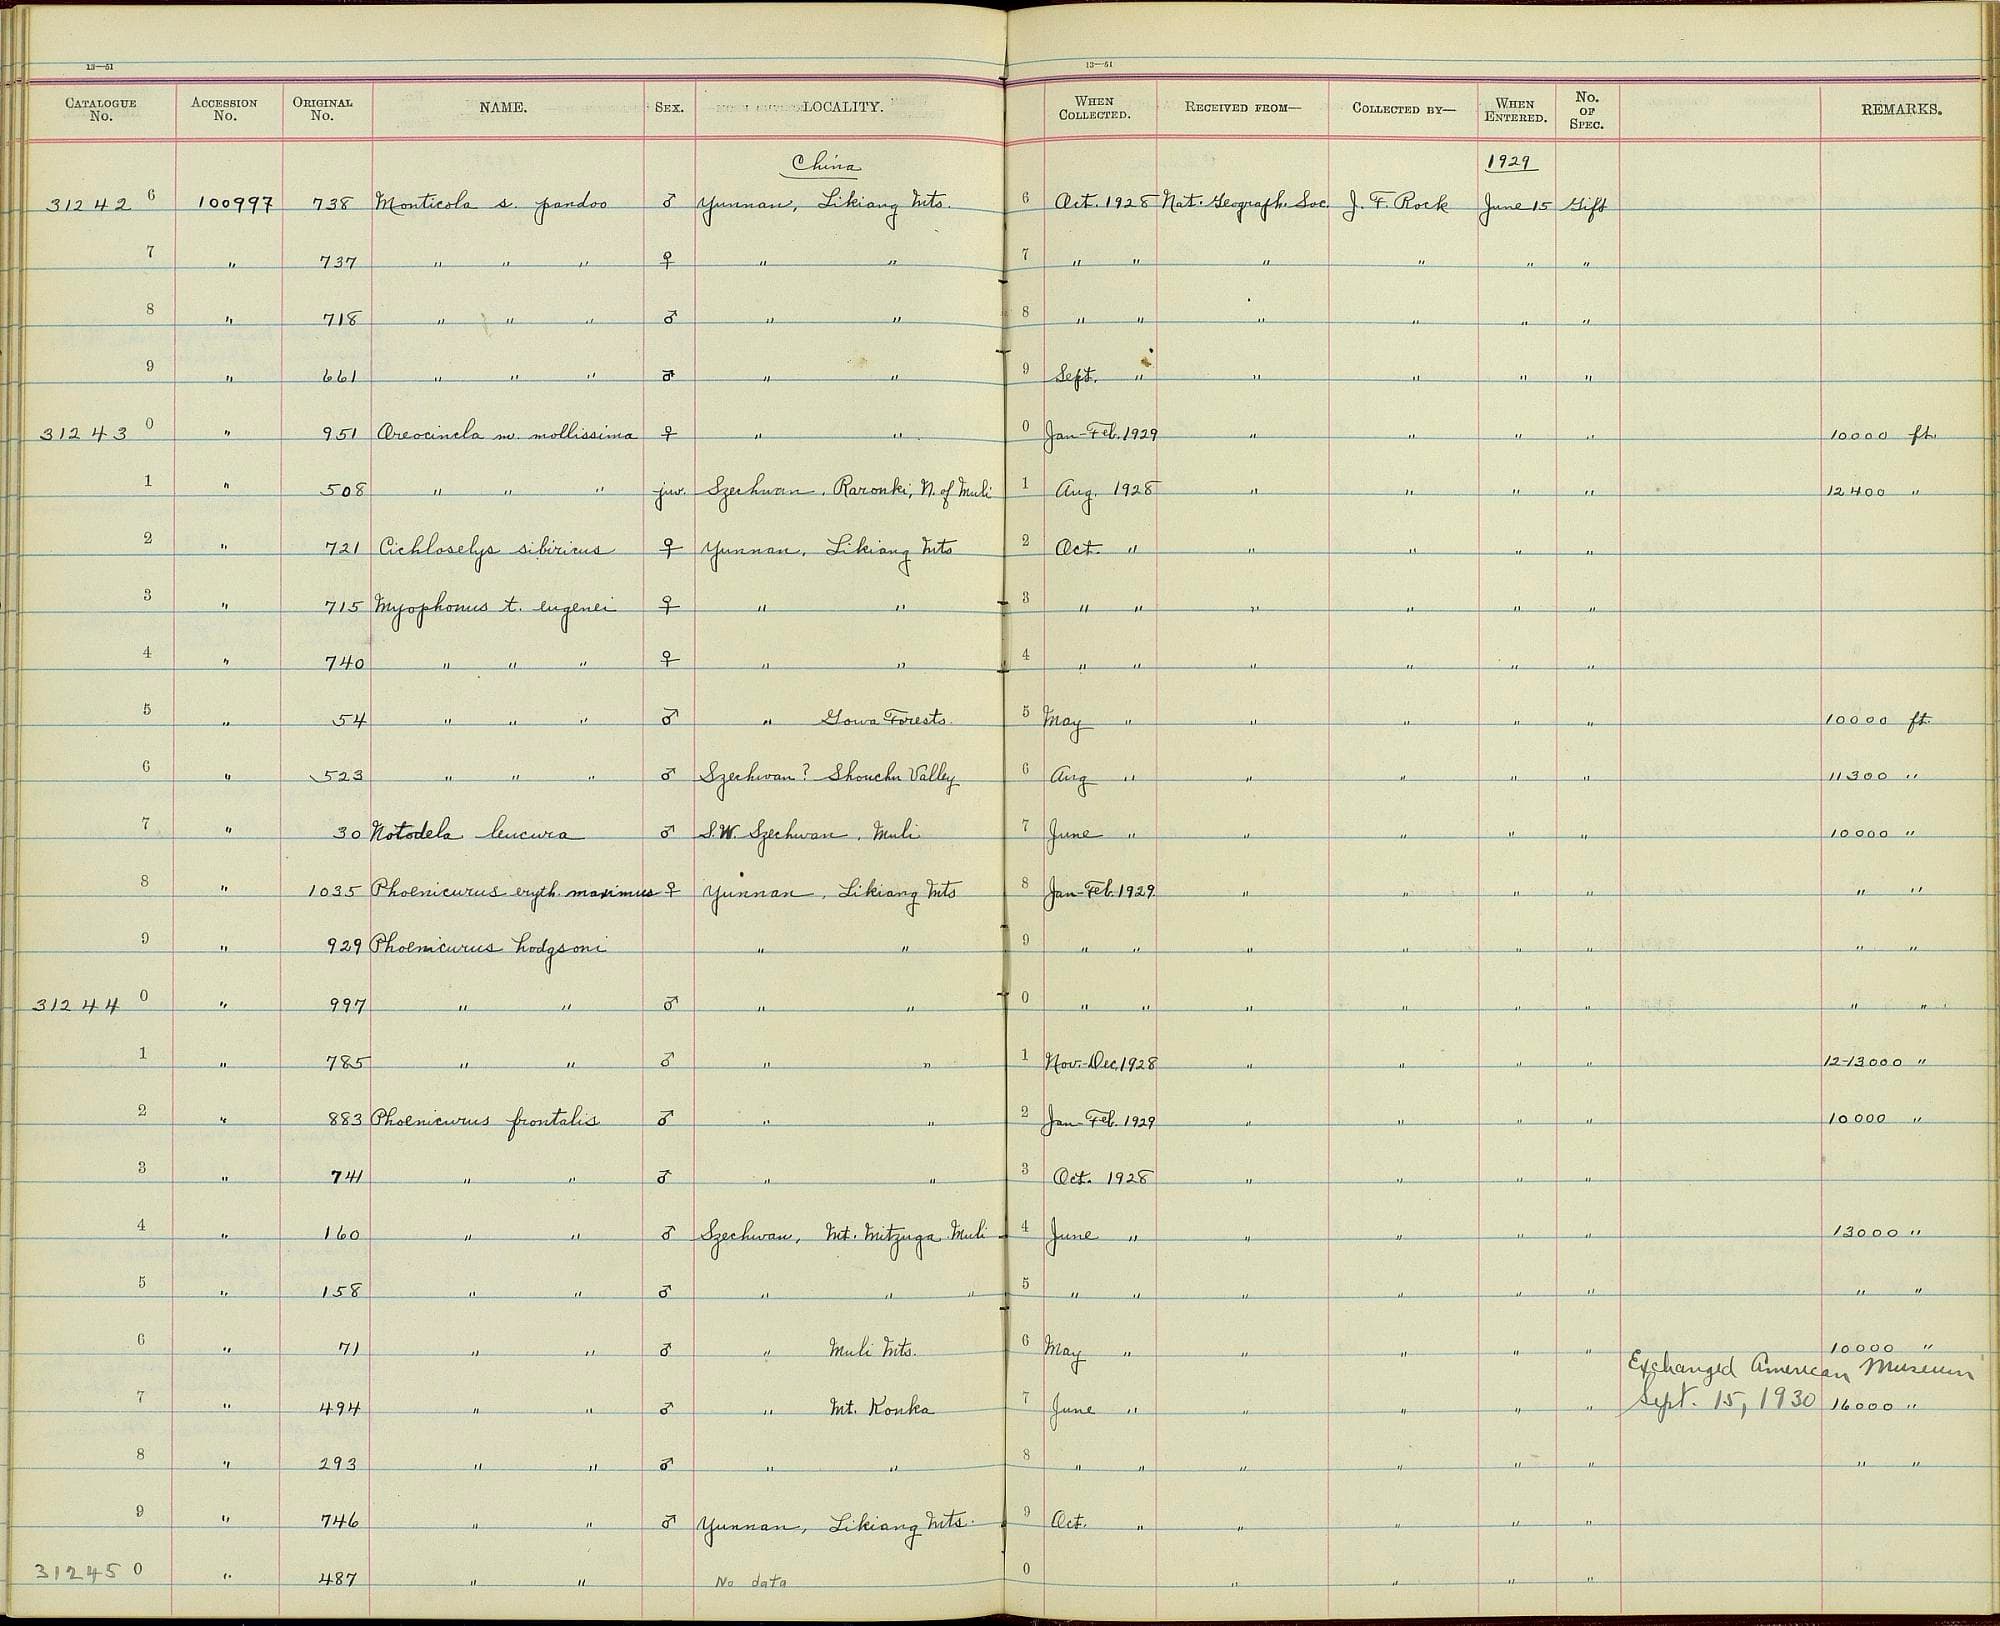 13—51 13—51
CATALOGUE No. ACCESSION No. ORIGINAL No. NAME. SEX. LOCALITY. WHEN COLLECTED. RECEIVED FROM— COLLECTED BY— WHEN ENTERED. No. OF SPEC. REMARKS.
China 1929
31242 6 100997 738 Monticola s. pandoo ♂ Yunnan, Likiang Mts. 6 Oct. 1928 Nat. Geograph. Soc. J. F. Rock June 15 Gift
7 " 737 " " " ♀ " " 7 " " " " " "
8 " 718 " " " ♂ " " 8 " " " " " "
9 " 661 " " " ♂ " " 9 Sept. " " " " "
31243 0 " 951 Oreocincla m. mollissima ♀ " " 0 Jan-Feb. 1929 " " " " 10000 ft.
1 " 508 " " " juv. Szechwan, Raronki, N. of Muli 1 Aug. 1928 " " " " 12400 "
2 " 721 Cichloselys sibiricus ♀ Yunnan, Likiang Mts 2 Oct. " " " " "
3 " 715 Myophonus t. eugenei ♀ " " 3 " " " " " "
4 " 740 " " " ♀ " " 4 " " " " " "
5 " 54 " " " ♂ " Gowa Forests. 5 May " " " " " 10000 ft.
6 " 523 " " " ♂ Szechwan? Shouchu Valley 6 Aug " " " " " 11300 "
7 " 30 Notodela leucura ♂ S.W. Szechwan, Muli 7 June " " " " " 10000 "
8 " 1035 Phoenicurus eryth. maximus ♀ Yunnan, Likiang Mts 8 Jan-Feb. 1929 " " " " " "
9 " 929 Phoenicurus hodgsoni " " 9 " " " " " " " "
31244 0 " 997 " " ♂ " " 0 " " " " " " " "
1 " 785 " " ♂ " " 1 Nov.-Dec. 1928 " " " " 12-13000 "
2 " 883 Phoenicurus frontalis ♂ " " 2 Jan-Feb. 1929 " " " " 10000 "
3 " 741 " " ♂ " " 3 Oct. 1928 " " " "
4 " 160 " " ♂ Szechwan, Mt. Mitzuga Muli 4 June " " " " " 13000 "
5 " 158 " " ♂ " " " 5 " " " " " " " "
6 " 71 " " ♂ " Muli Mts. 6 May " " " " " 10000 "
Exchanged American Museum
7 " 494 " " ♂ " Mt. Konka 7 June " " " " " Sept. 15, 1930 16000 "
8 " 293 " " ♂ " " 8 " " " " " " " "
9 " 746 " " ♂ Yunnan, Likiang Mts. 9 Oct. " " " " "
31245 0 " 487 " " No data 0 " " " "